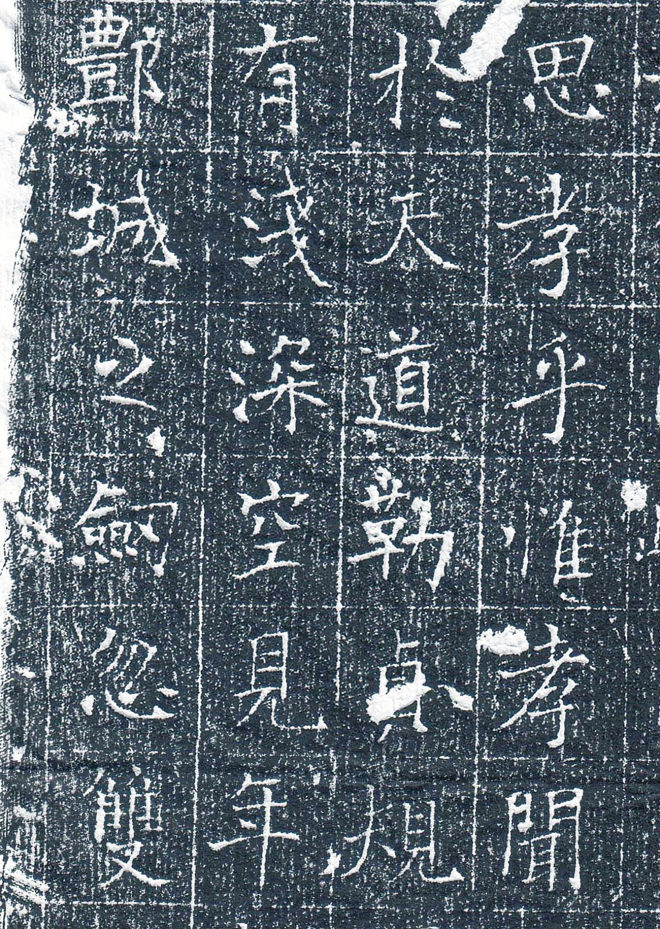 思孝乎惟孝聞
於天道勒貞規
有浅深空見年
酆城之劒忽雙